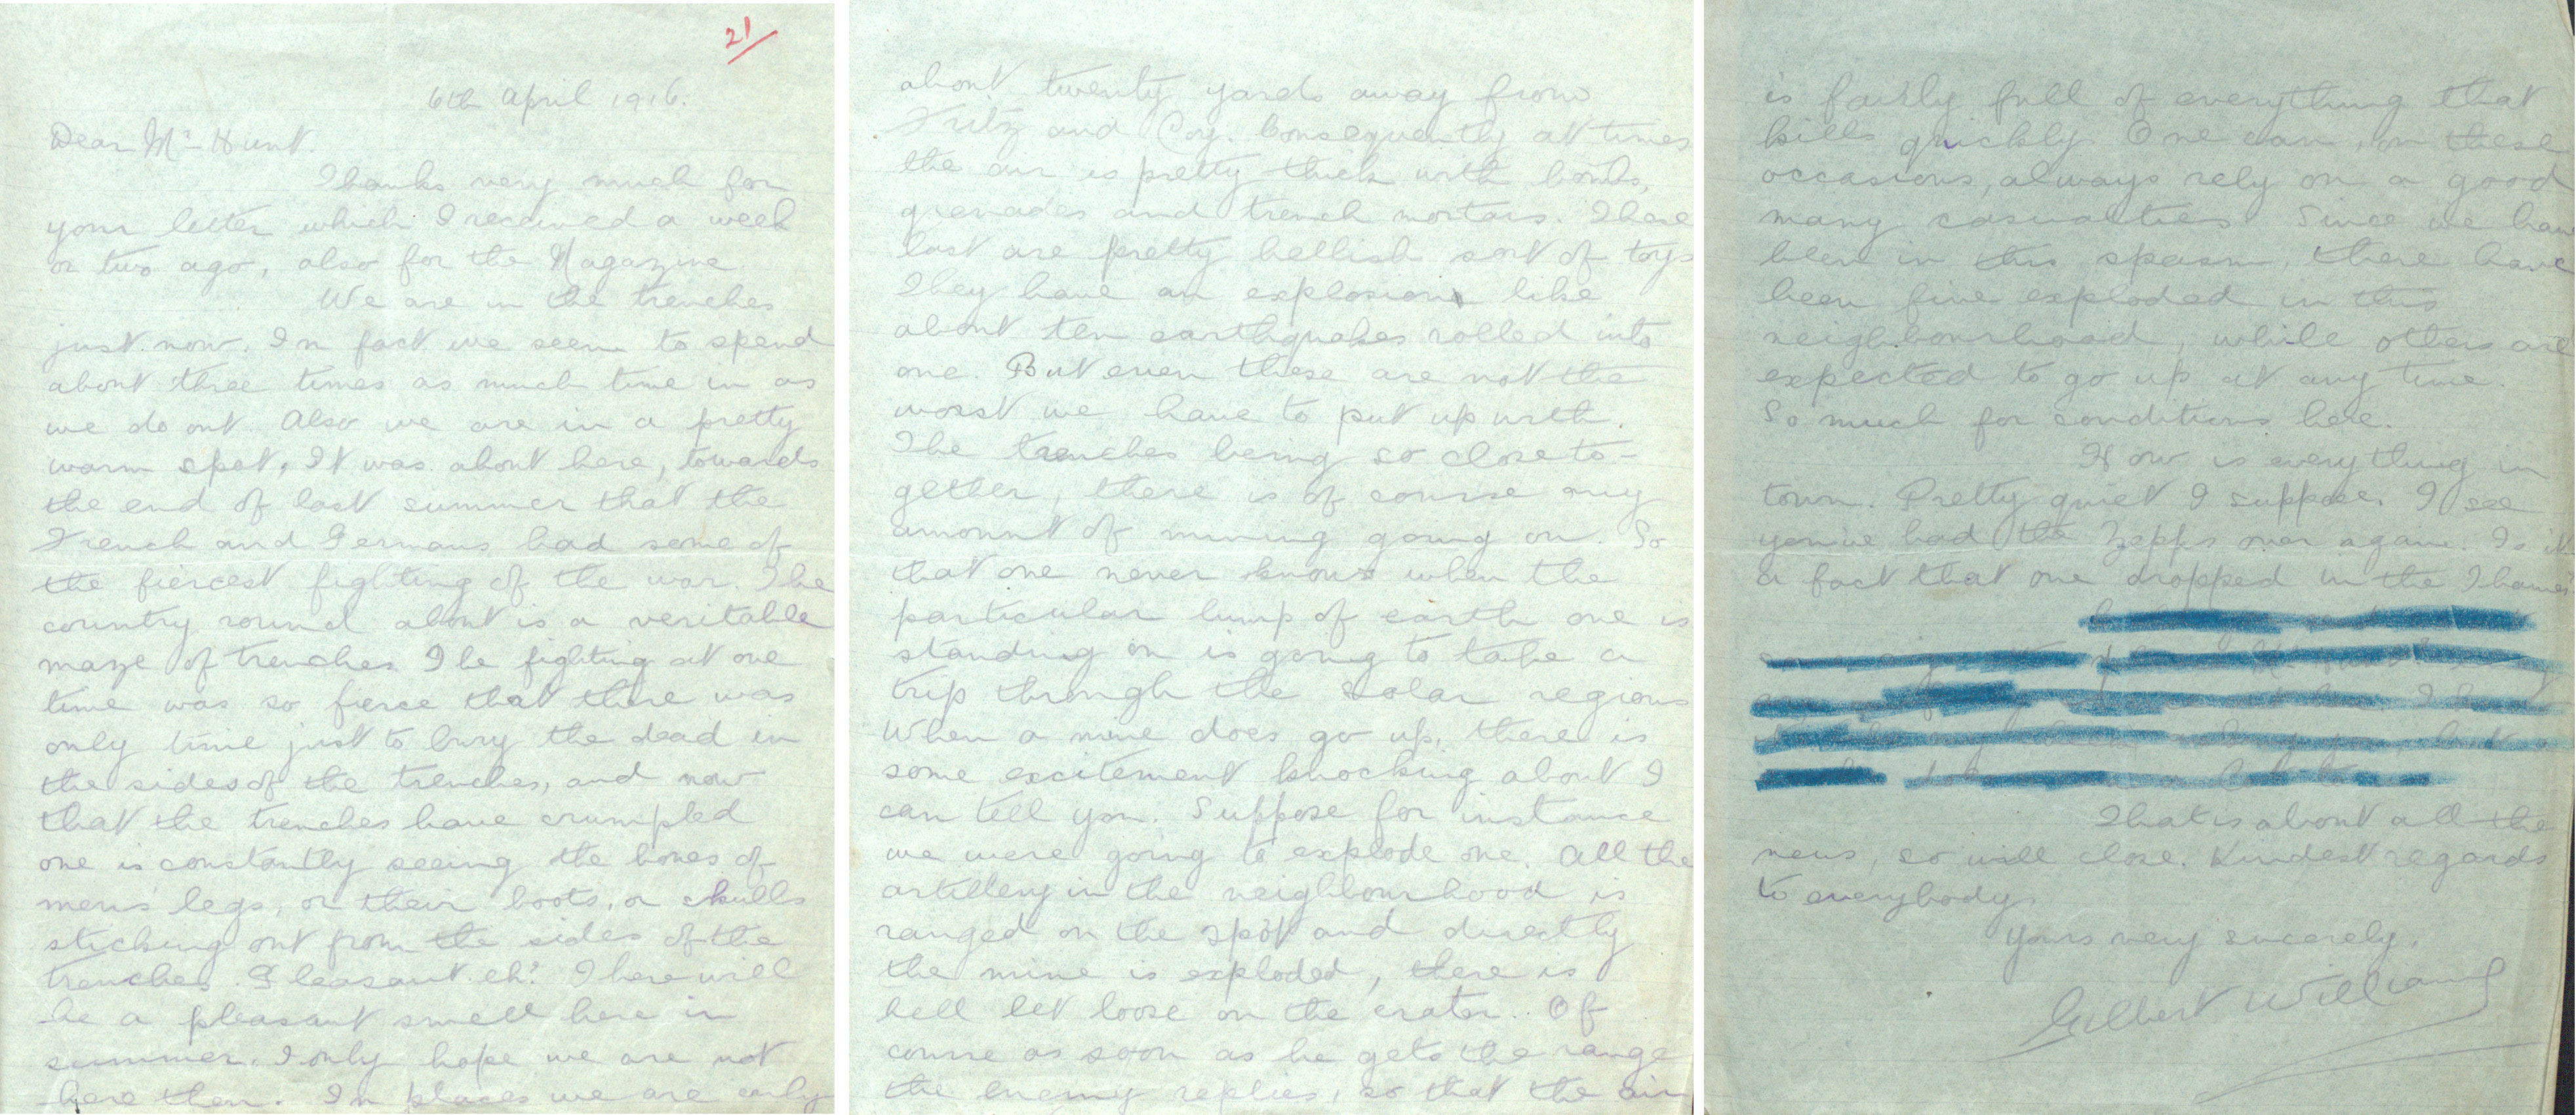 21/
6th April 1916.
Dear Mr Hunt.
Thanks very much for
your letter which I received a week
or two ago, also for the Magazine.
We are in the trenches
just now. In fact we seem to spend
about three times as much time in as
we do out. Also we are in a pretty
warm spot. It was about here, towards
the end of last summer that the
French and Germans had some of
the fiercest fighting of the war. The
country round about is a veritable
maze of trenches. The fighting at one
time was so fierce that there was
only time just to bury the dead in
the sides of the trenches, and now
that the trenches have crumpled
one is constantly seeing the bones of
men's legs, or their boots, or skulls
sticking out from the sides of the
trenches. Pleasant. eh? There will
be a pleasant smell here in
summer. I only hope we are not
here then. In places we are only
about twenty yards away from
Fritz and Coy. Consequently at times
the air is pretty thick with bombs,
grenades and trench mortars. These
last are pretty hellish sort of toys
They have an explosion like
about ten earthquakes rolled into
one. But even these are not the
worst we have to put up with.
The trenches being so close to-
gether, there is of course any
amount of mining going on. So
that one never knows when the
particular lump of earth one is
standing on is going to take a
trip through the solar regions
When a mine does go up, there is
some excitement knocking about I
can tell you. Suppose for instance
we were going to explode one. All the
artillery in the neighbourhood is
ranged on the spot and directly
the mine is exploded, there is
hell let loose on the crater. Of
course as soon as he gets the range
the enemy replies, so that the air
is fairly full of everything that
kills quickly. One can, on these
occasions, always rely on a good
many casualties. Since we have
been in this spasm, there have
been five exploded in this
neighbourhood, while others are
expected to go up at any time.
So much for conditions here.
How is everything in
town. Pretty quiet I suppose. I see
you've had the Zepps over again. Is it
a fact that one dropped in the Thames
That is about all the
news, so will close. Kindest regards
to everybody.
Yours very sincerely,
Gilbert Williams